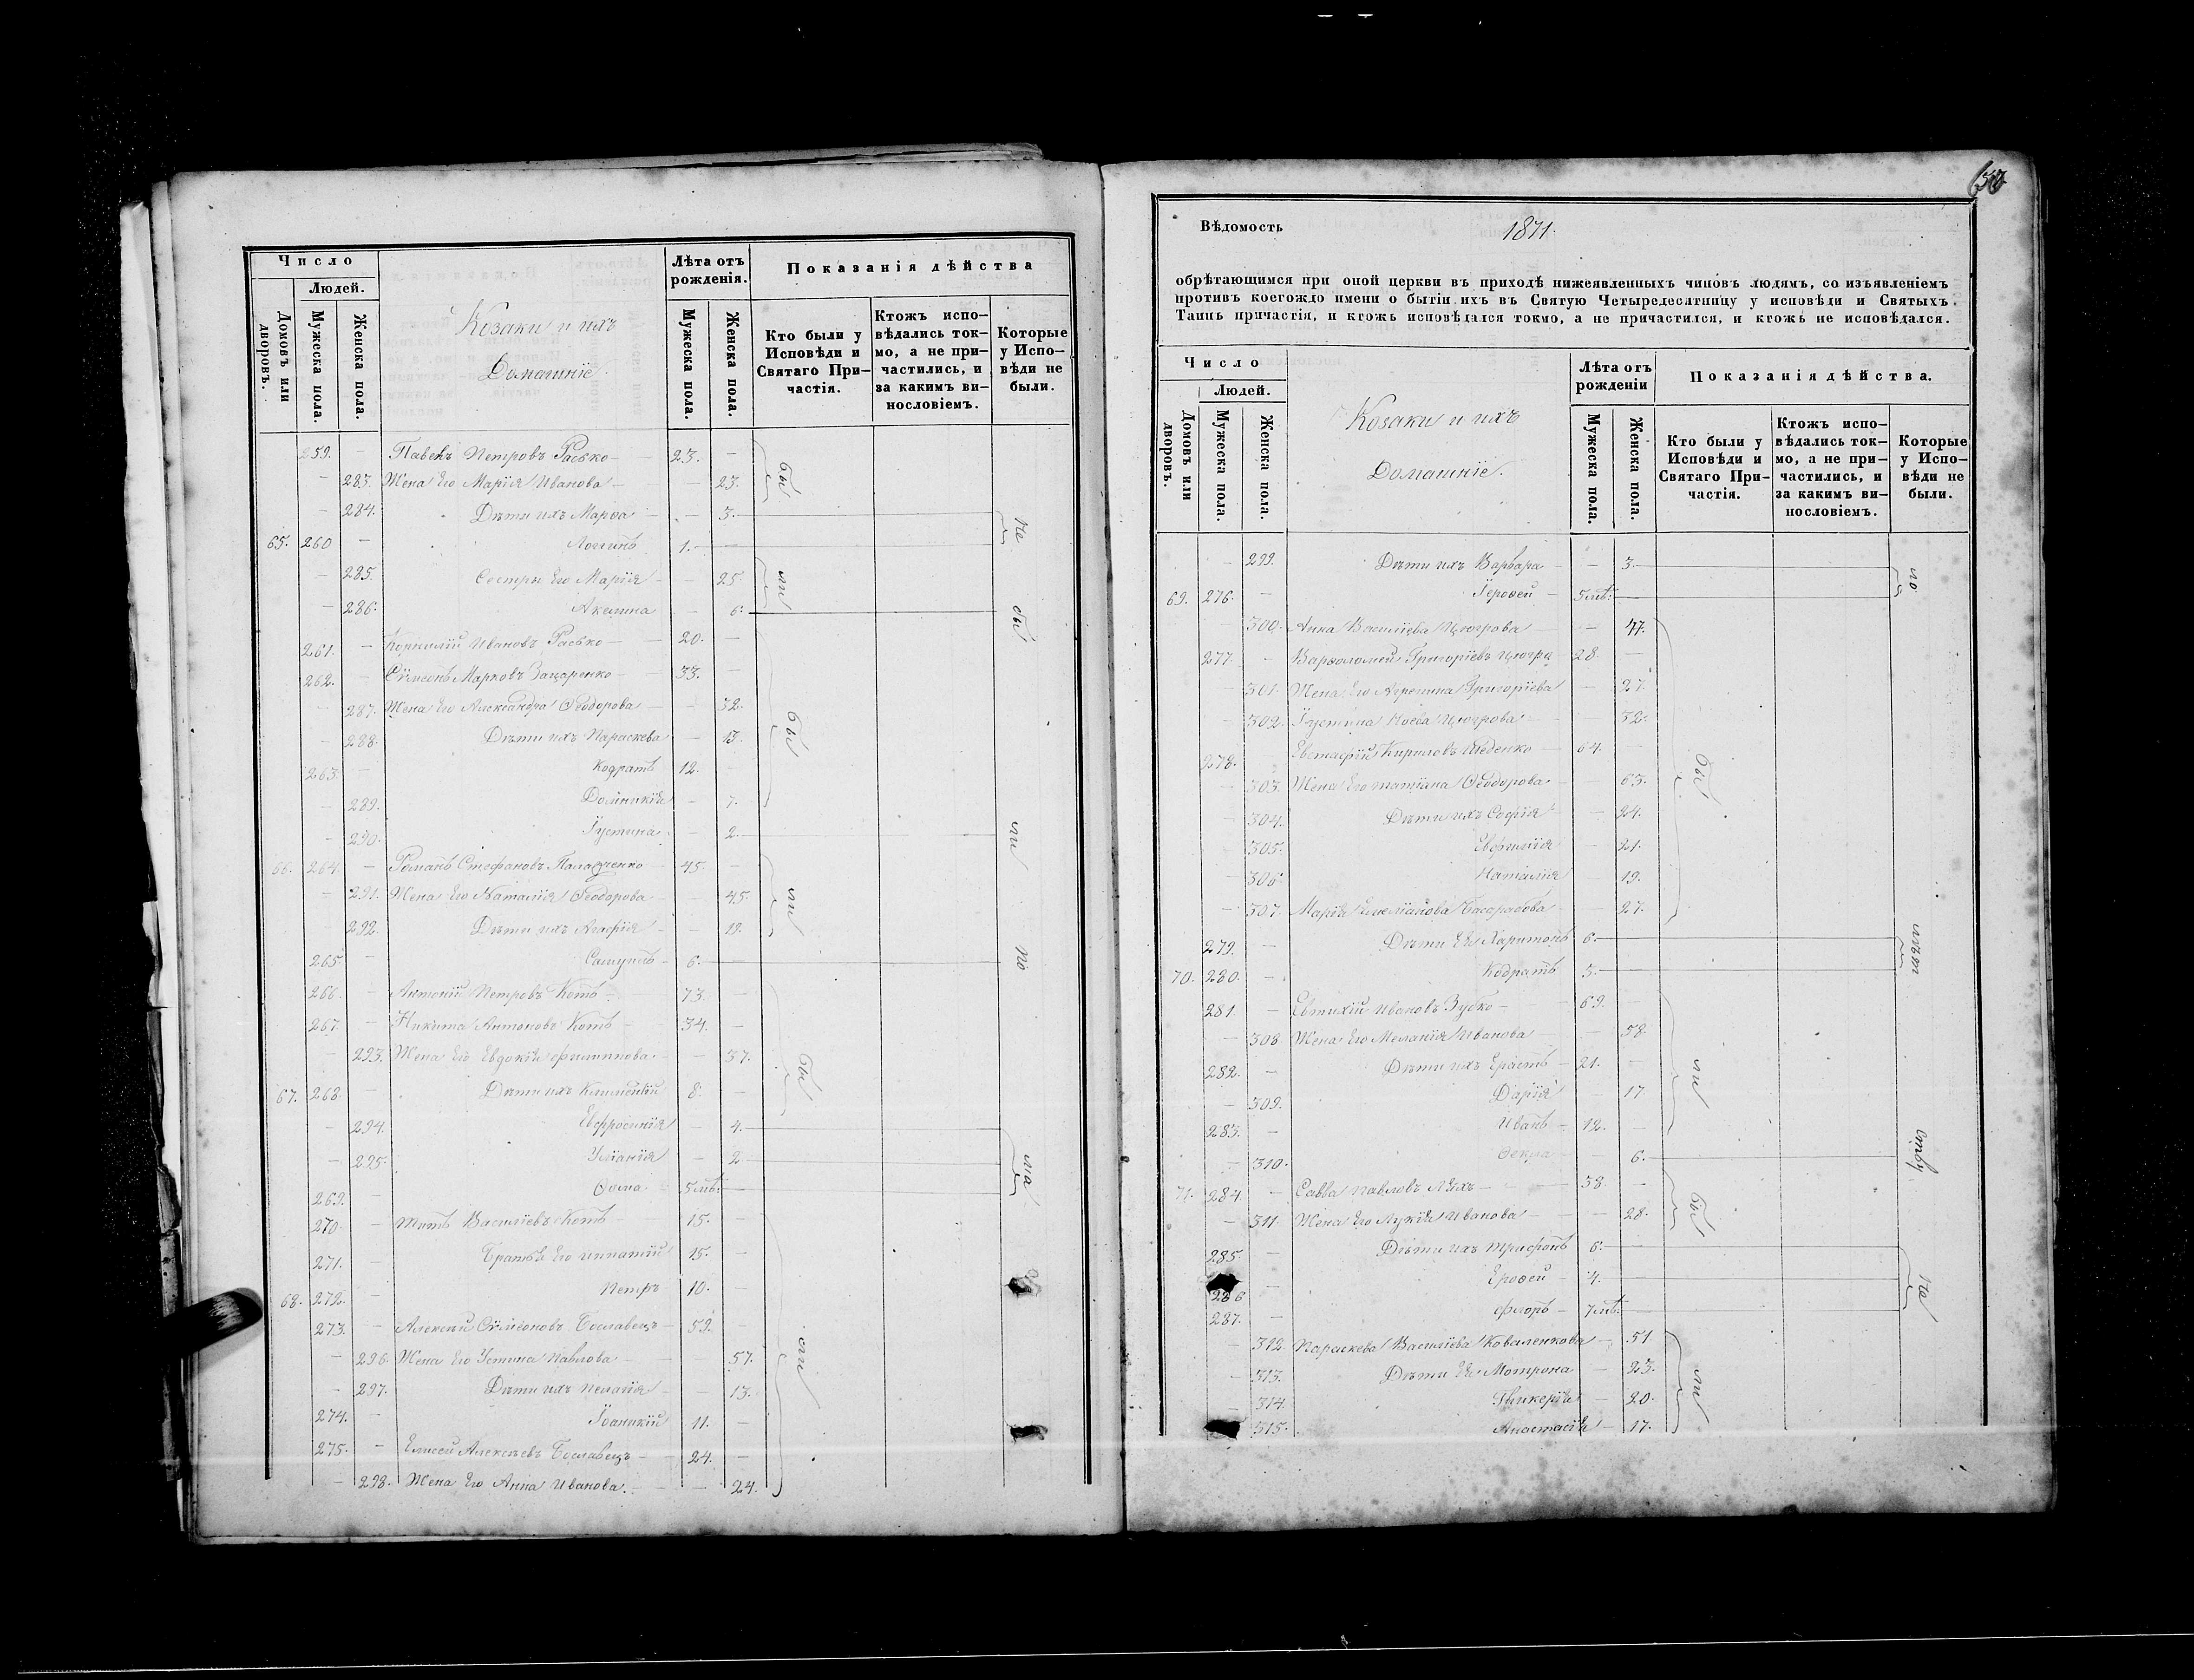 Число
Людей.
Домовъ или дворовъ.
Мужеска пола.
Женска пола.
Козаки и ихъ
Домашніе.
Лѣта отъ рожденія.
Мужеска пола.
Женска пола.
Показанія дѣйства
Кто были у Исповѣди и Святаго Причастія.
Ктожъ исповѣдались токмо, а не причастились, и за какимъ винословіемъ.
Которые у Исповѣди не были.
259. — Павелъ Петровъ Расько — 23. —
— 283. Жена Его Марія Иванова — — 23.
— 284. Дѣти ихъ Марѳа — — 3.
65. 260 — Логгинъ 1. —
— 285. Сестры Его Марія — — 25.
— 286. Акелина — 6.
261. — Корнилій Ивановъ Расько — 20. —
262. — Сѵмеонъ Марковъ Захаренко — 33. —
— 287. Жена Его Александра Ѳеодорова — — 32.
— 288. Дѣти ихъ Параскева — 13.
263. — Кодратъ 12. —
— 289. Домникія — 7.
— 290. Іустина — 2.
66. 264. — Романъ Стефановъ — 45. —
— 291. Жена Его Наталія Ѳеодорова — — 45.
— 292. Дѣти ихъ Агафія — — 12.
265. — Самуилъ — 6. —
266. — Антоній Петровъ Котъ — 73. —
267. — Никита Антоновъ Котъ — 34. —
— 293. Жена Его Евдокія Филиппова — — 37.
67. 268. — Дѣти ихъ Климентій 8. —
— 294. Евфросинія — 4.
— 295. Уліанія — 2.
269. — Ѳома — 5 мѣ. —
270. — Титъ Василіевъ Котъ — 15. —
271. — Братья Его Ипатій 15. —
68. 272. — Петръ 10. —
273. — Алексій Сѵмеоновъ Бославецъ — 59. —
— 296. Жена Его Устина Павлова — — 57.
— 297. Дѣти ихъ Пелагія — — 13.
274. — Іоаникій 11. —
275. — Елисей Алексѣевъ Бославецъ — 24. —
— 298. Жена Его Анна Иванова — — 24.
бы
ли
бы
ли
бы
ли
не
бы
ли
по
ма
Вѣдомость 1871.
обрѣтающимся при оной церкви въ приходѣ нижеявленныхъ чиновъ людямъ, со изъявленіемъ
противъ коегождо имени о бытіи ихъ въ Святую Четыредесятницу у исповѣди и Святыхъ
Таинъ причастія, и ктожъ исповѣдался токмо, а не причастился, и ктожъ не исповѣдался.
Число
Людей.
Домовъ или дворовъ.
Мужеска пола.
Женска пола.
Козаки и ихъ
Домашніе.
Лѣта отъ рожденіи
Мужеска пола.
Женска пола.
Показанія дѣйства.
Кто были у Исповѣди и Святаго Причастія.
Ктожъ исповѣдались токмо, а не причастились, и за какимъ винословіемъ.
Которые у Исповѣди не были.
— 299. Дѣти ихъ Варвара — — 3.
69. 276. — Іероѳей — 5 мѣ.
— 300. Анна Василіева — 47.
277. — Варѳоломей Григоріевъ 28. —
— 301. Жена Его Агрепина Григоріева — 27.
— 302. Іустина — 32.
278. Евстафій Кириловъ — 64. —
— 303. Жена Его Татіана Ѳеодорова — — 63.
— 304. Дѣти ихъ Софія — — 24.
— 305. Евфимія — 21.
— 306. Наталія — 19.
— 307. Марія Емеліанова — — 27.
279. — Дѣти Ея Харитонъ 6.
70. 280. — Кодратъ 3.
281. — Евтихій Ивановъ Зубко — 69. —
— 308. Жена Его Меланія Иванова — 58.
282. — Дѣти ихъ Ерастъ — 21. —
— 309. Дарія — 17
283. — Иванъ — 12. —
— 310. Ѳекла — 6.
71. 284. — Савва Павловъ Ляхъ — 38. —
— 311. Жена Его Лукія Иванова — — 28.
285. — Дѣти ихъ Трифонъ 6.
286 — Ероѳей — 4.
287. — Флоръ — 7 мѣ.
— 312. Параскева Василіева Коваленкова — 51
— 313. Дѣти Ея Мотрона — 23.
— 314. Гликерія — 20.
315. Анастасія — 17.
бы
ли
бы
ли
по
лѣт
ству